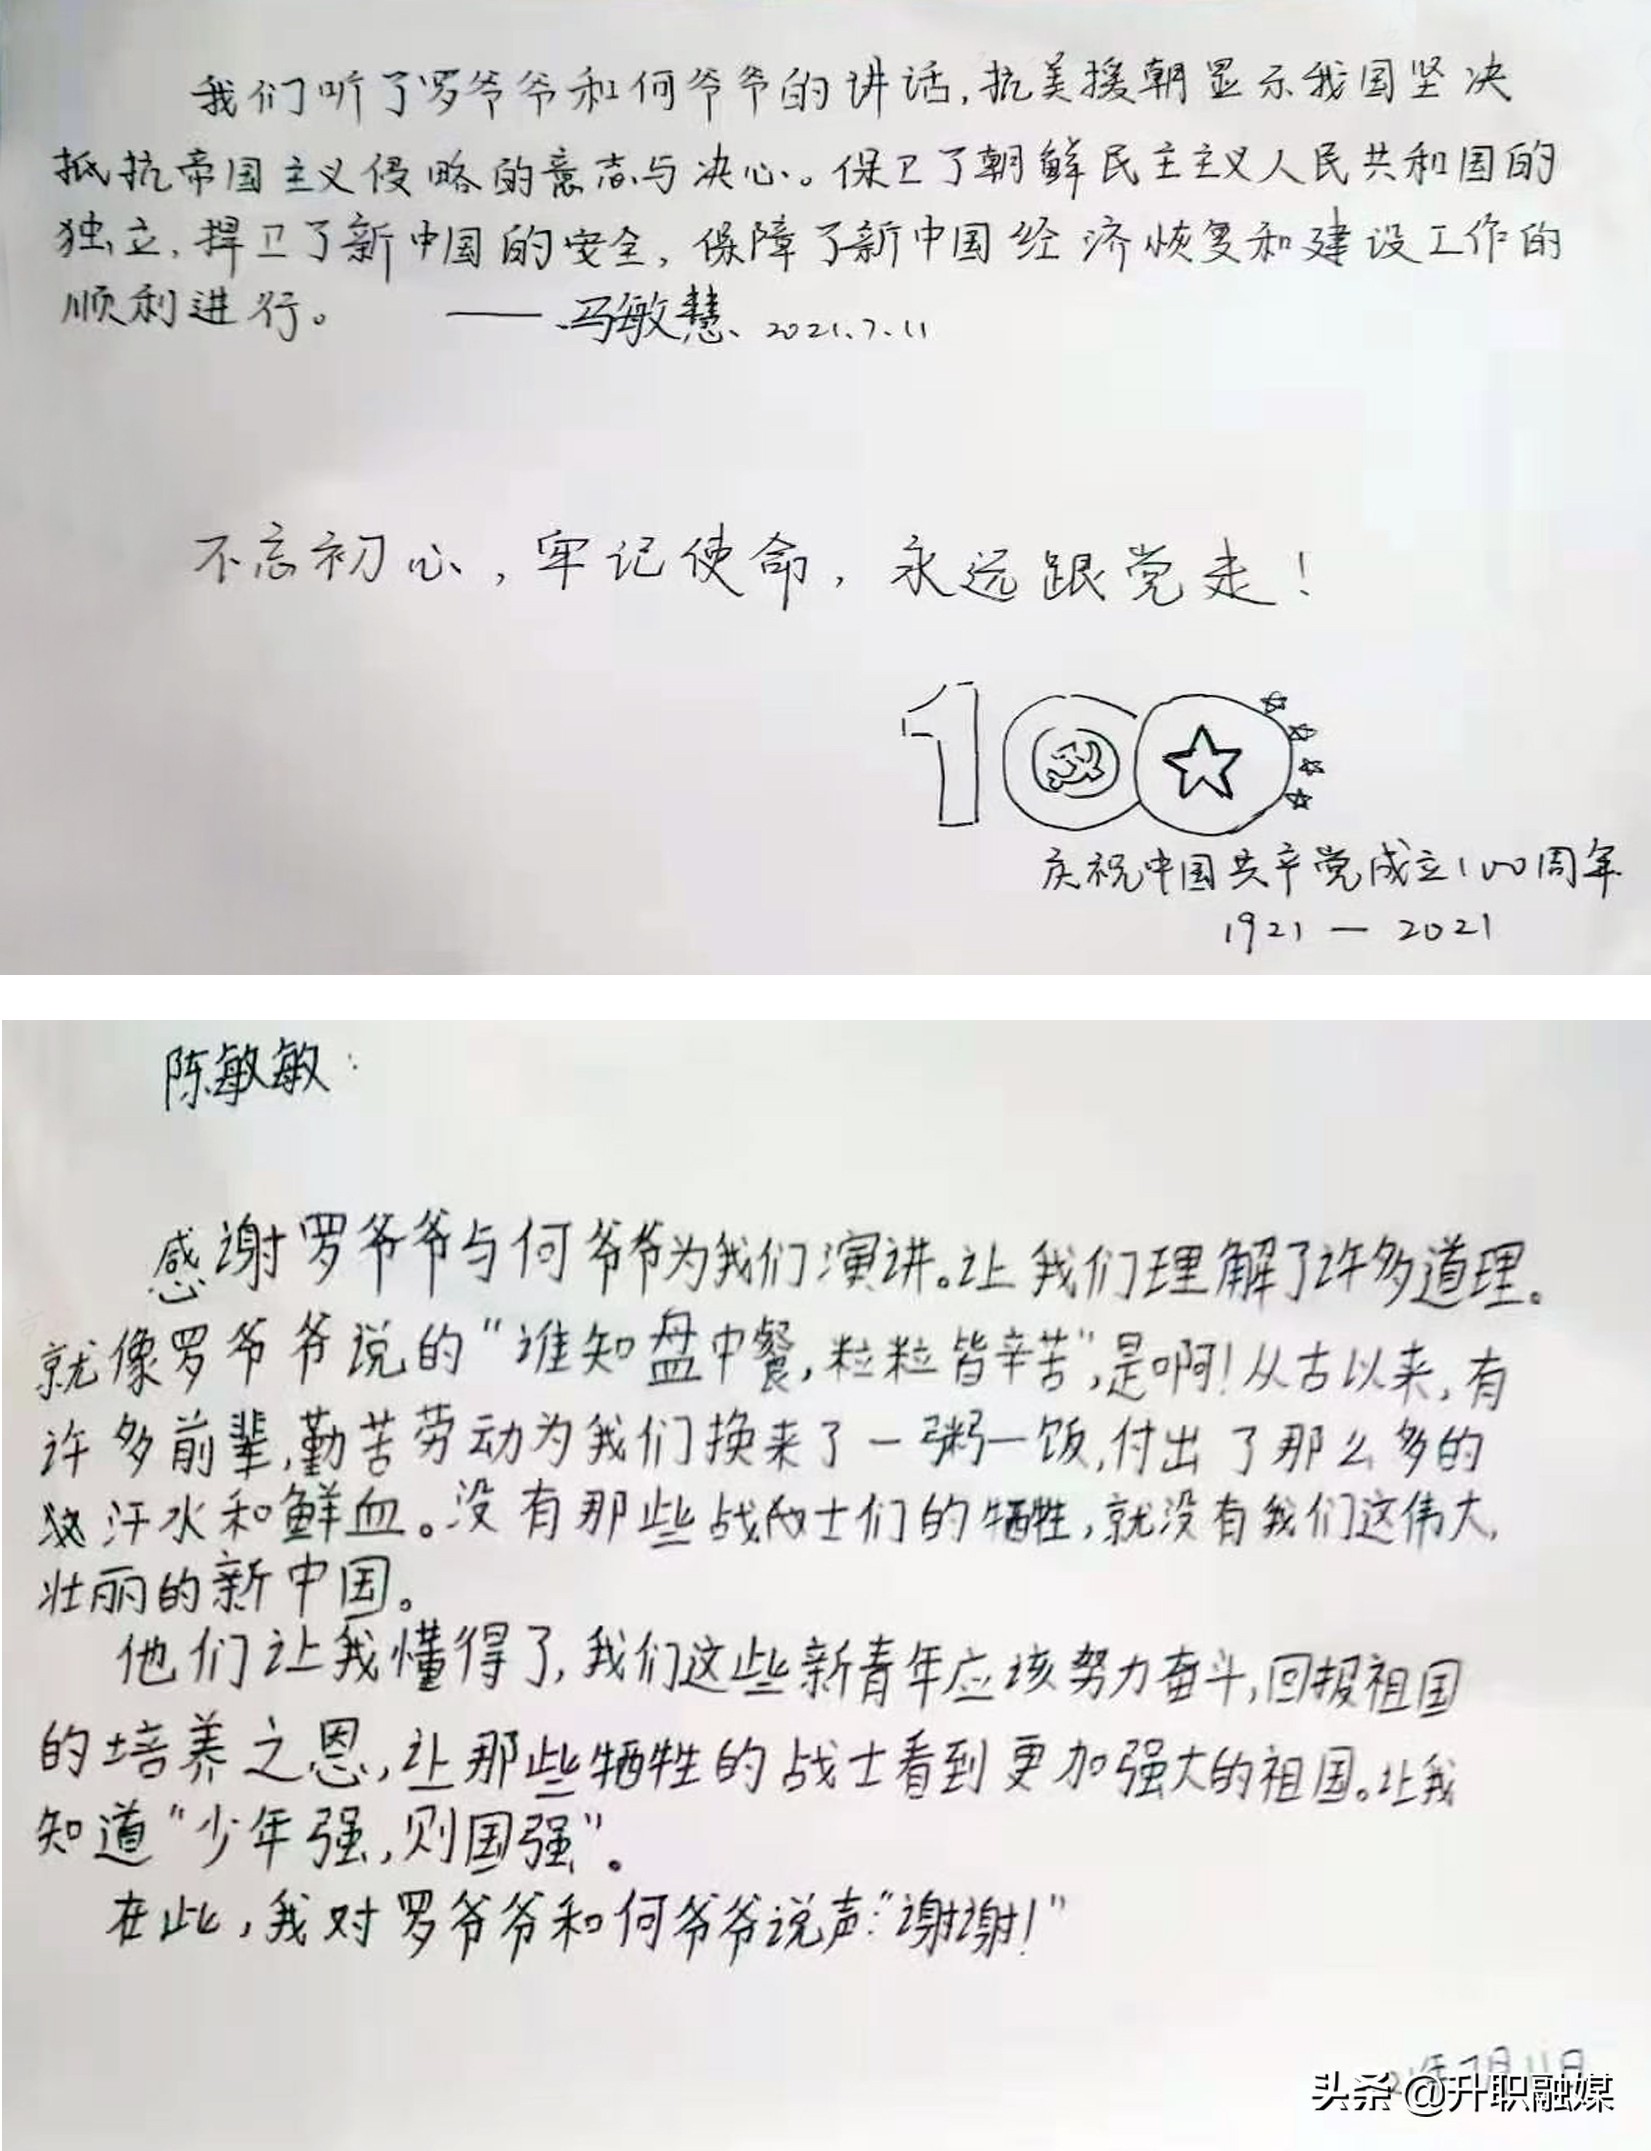 我们听了罗爷爷和何爷爷的讲话,抗美援朝显示我国坚决
抵抗帝国主义侵略的意志与决心。保卫了朝鲜民主主义人民共和国的
独立,捍卫了新中国的安全,保障了新中国经济恢复和建设工作的
顺利进行。 ——马敏慧、2021.7.11
不忘初心,牢记使命,永远跟党走!
100
庆祝中国共产党成立100周年
1921—2021
陈敏敏:
感谢罗爷爷与何爷爷为我们演讲。让我们理解了许多道理。
就像罗爷爷说的“谁知盘中餐,粒粒皆辛苦”,是啊!从古以来,有
许多前辈,勤苦劳动为我们换来了一粥一饭,付出了那么多的
汗水和鲜血。没有那些战士们的牺牲,就没有我们这伟大,
壮丽的新中国。
他们让我懂得了,我们这些新青年应该努力奋斗,回报祖国
的培养之恩,让那些牺牲的战士看到更加强大的祖国。让我
知道“少年强,则国强”。
在此,我对罗爷爷和何爷爷说声:“谢谢!”
年7月11日
头条 @升职融媒